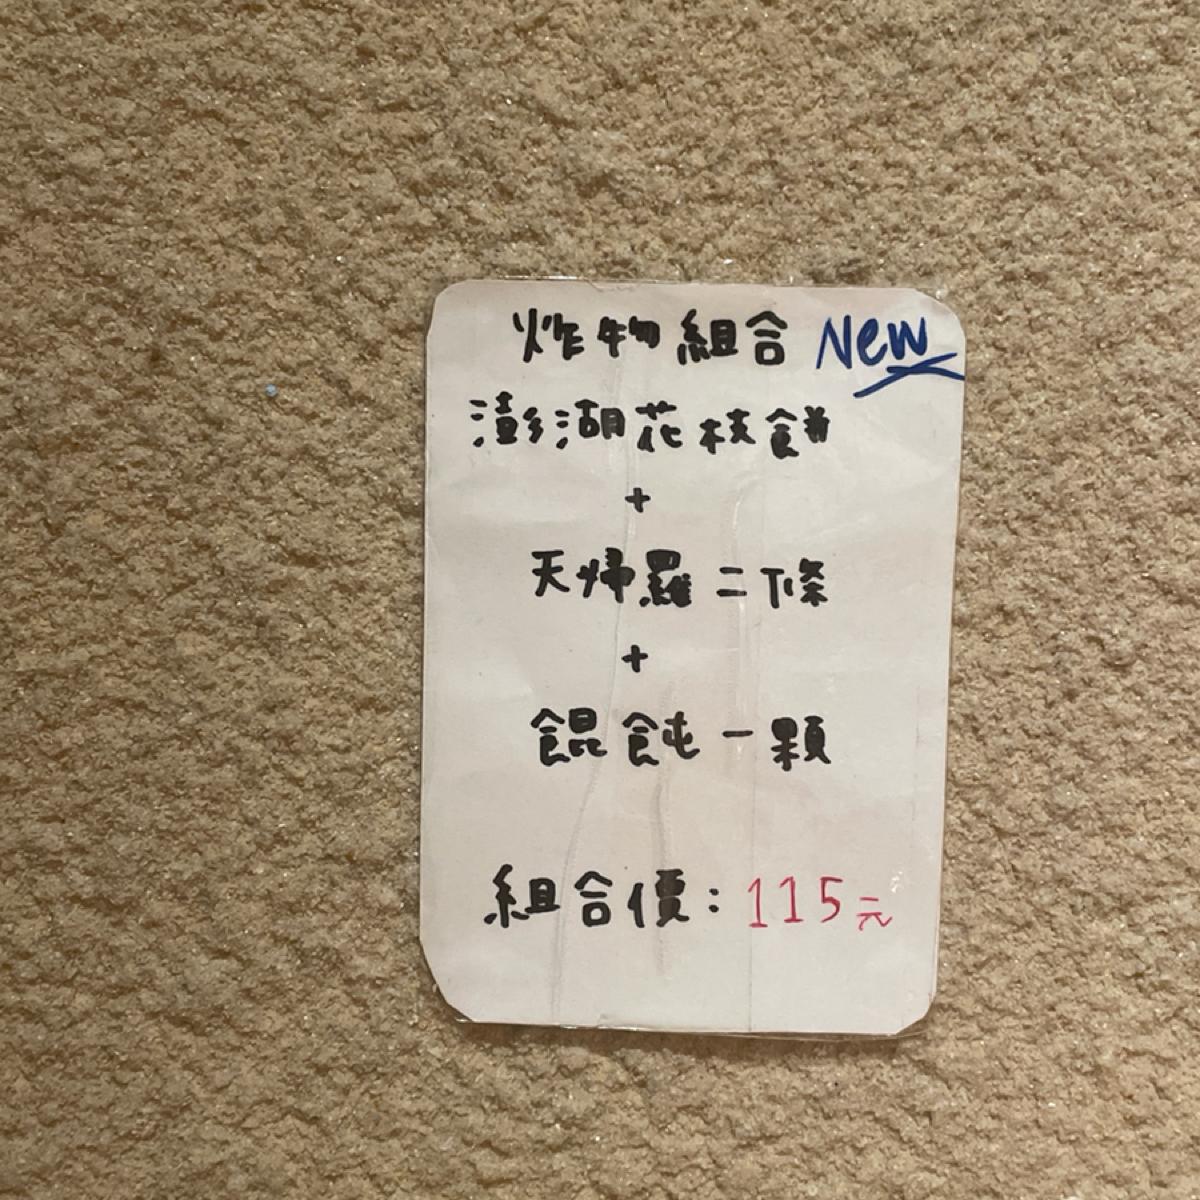 炸物組合 New
澎湖花枝餅
+
天婦羅二條
+
餛飩一顆
組合價：115元